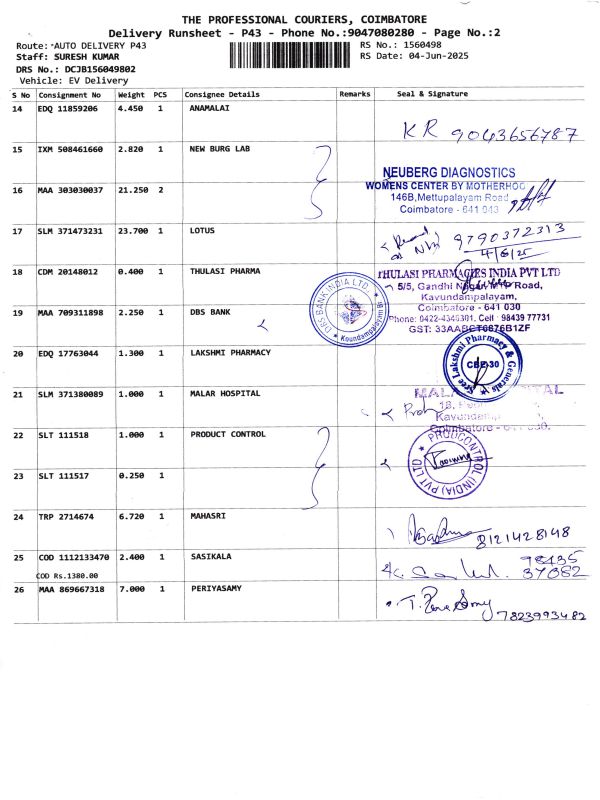 THE PROFESSIONAL COURIERS, COIMBATORE
Delivery Runsheet - P43 - Phone No.:9047080280 - Page No.:2
Route: AUTO DELIVERY P43 RS No.: 1560498
Staff: SURESH KUMAR RS Date: 04-Jun-2025
DRS No.: DCJB156049802
Vehicle: EV Delivery
S No Consignment No Weight PCS Consignee Details Remarks Seal & Signature
14 EDQ 11859206 4.450 1 ANAMALAI
KR 9043656787
15 IXM 508461660 2.820 1 NEW BURG LAB
NEUBERG DIAGNOSTICS
WOMENS CENTER BY MOTHERHOO
146B, Mettupalayam Road
Coimbatore - 641 043
16 MAA 303030037 21.250 2
17 SLM 371473231 23.700 1 LOTUS
9790372313
4/6/25
18 CDM 20148012 0.400 1 THULASI PHARMA
THULASI PHARMACIES INDIA PVT LTD
5/5, Gandhi Nagar, Road,
Kavundampalayam,
Coimbatore - 641 030
Phone: 0422-4346301, Cell : 98439 77731
19 MAA 709311898 2.250 1 DBS BANK
DBS BANK INDIA LTD. Koundampalayam
20 EDQ 17763044 1.300 1 LAKSHMI PHARMACY
Sree Lakshmi Pharmacy & Generals
CBE-30
21 SLM 371380089 1.000 1 MALAR HOSPITAL
22 SLT 111518 1.000 1 PRODUCT CONTROL
PRODUCONTROL (INDIA) PVT LTD
23 SLT 111517 0.250 1
24 TRP 2714674 6.720 1 MAHASRI
8121428148
25 COD 1112133470 2.400 1 SASIKALA
COD Rs.1380.00
37082
26 MAA 869667318 7.000 1 PERIYASAMY
7823993482